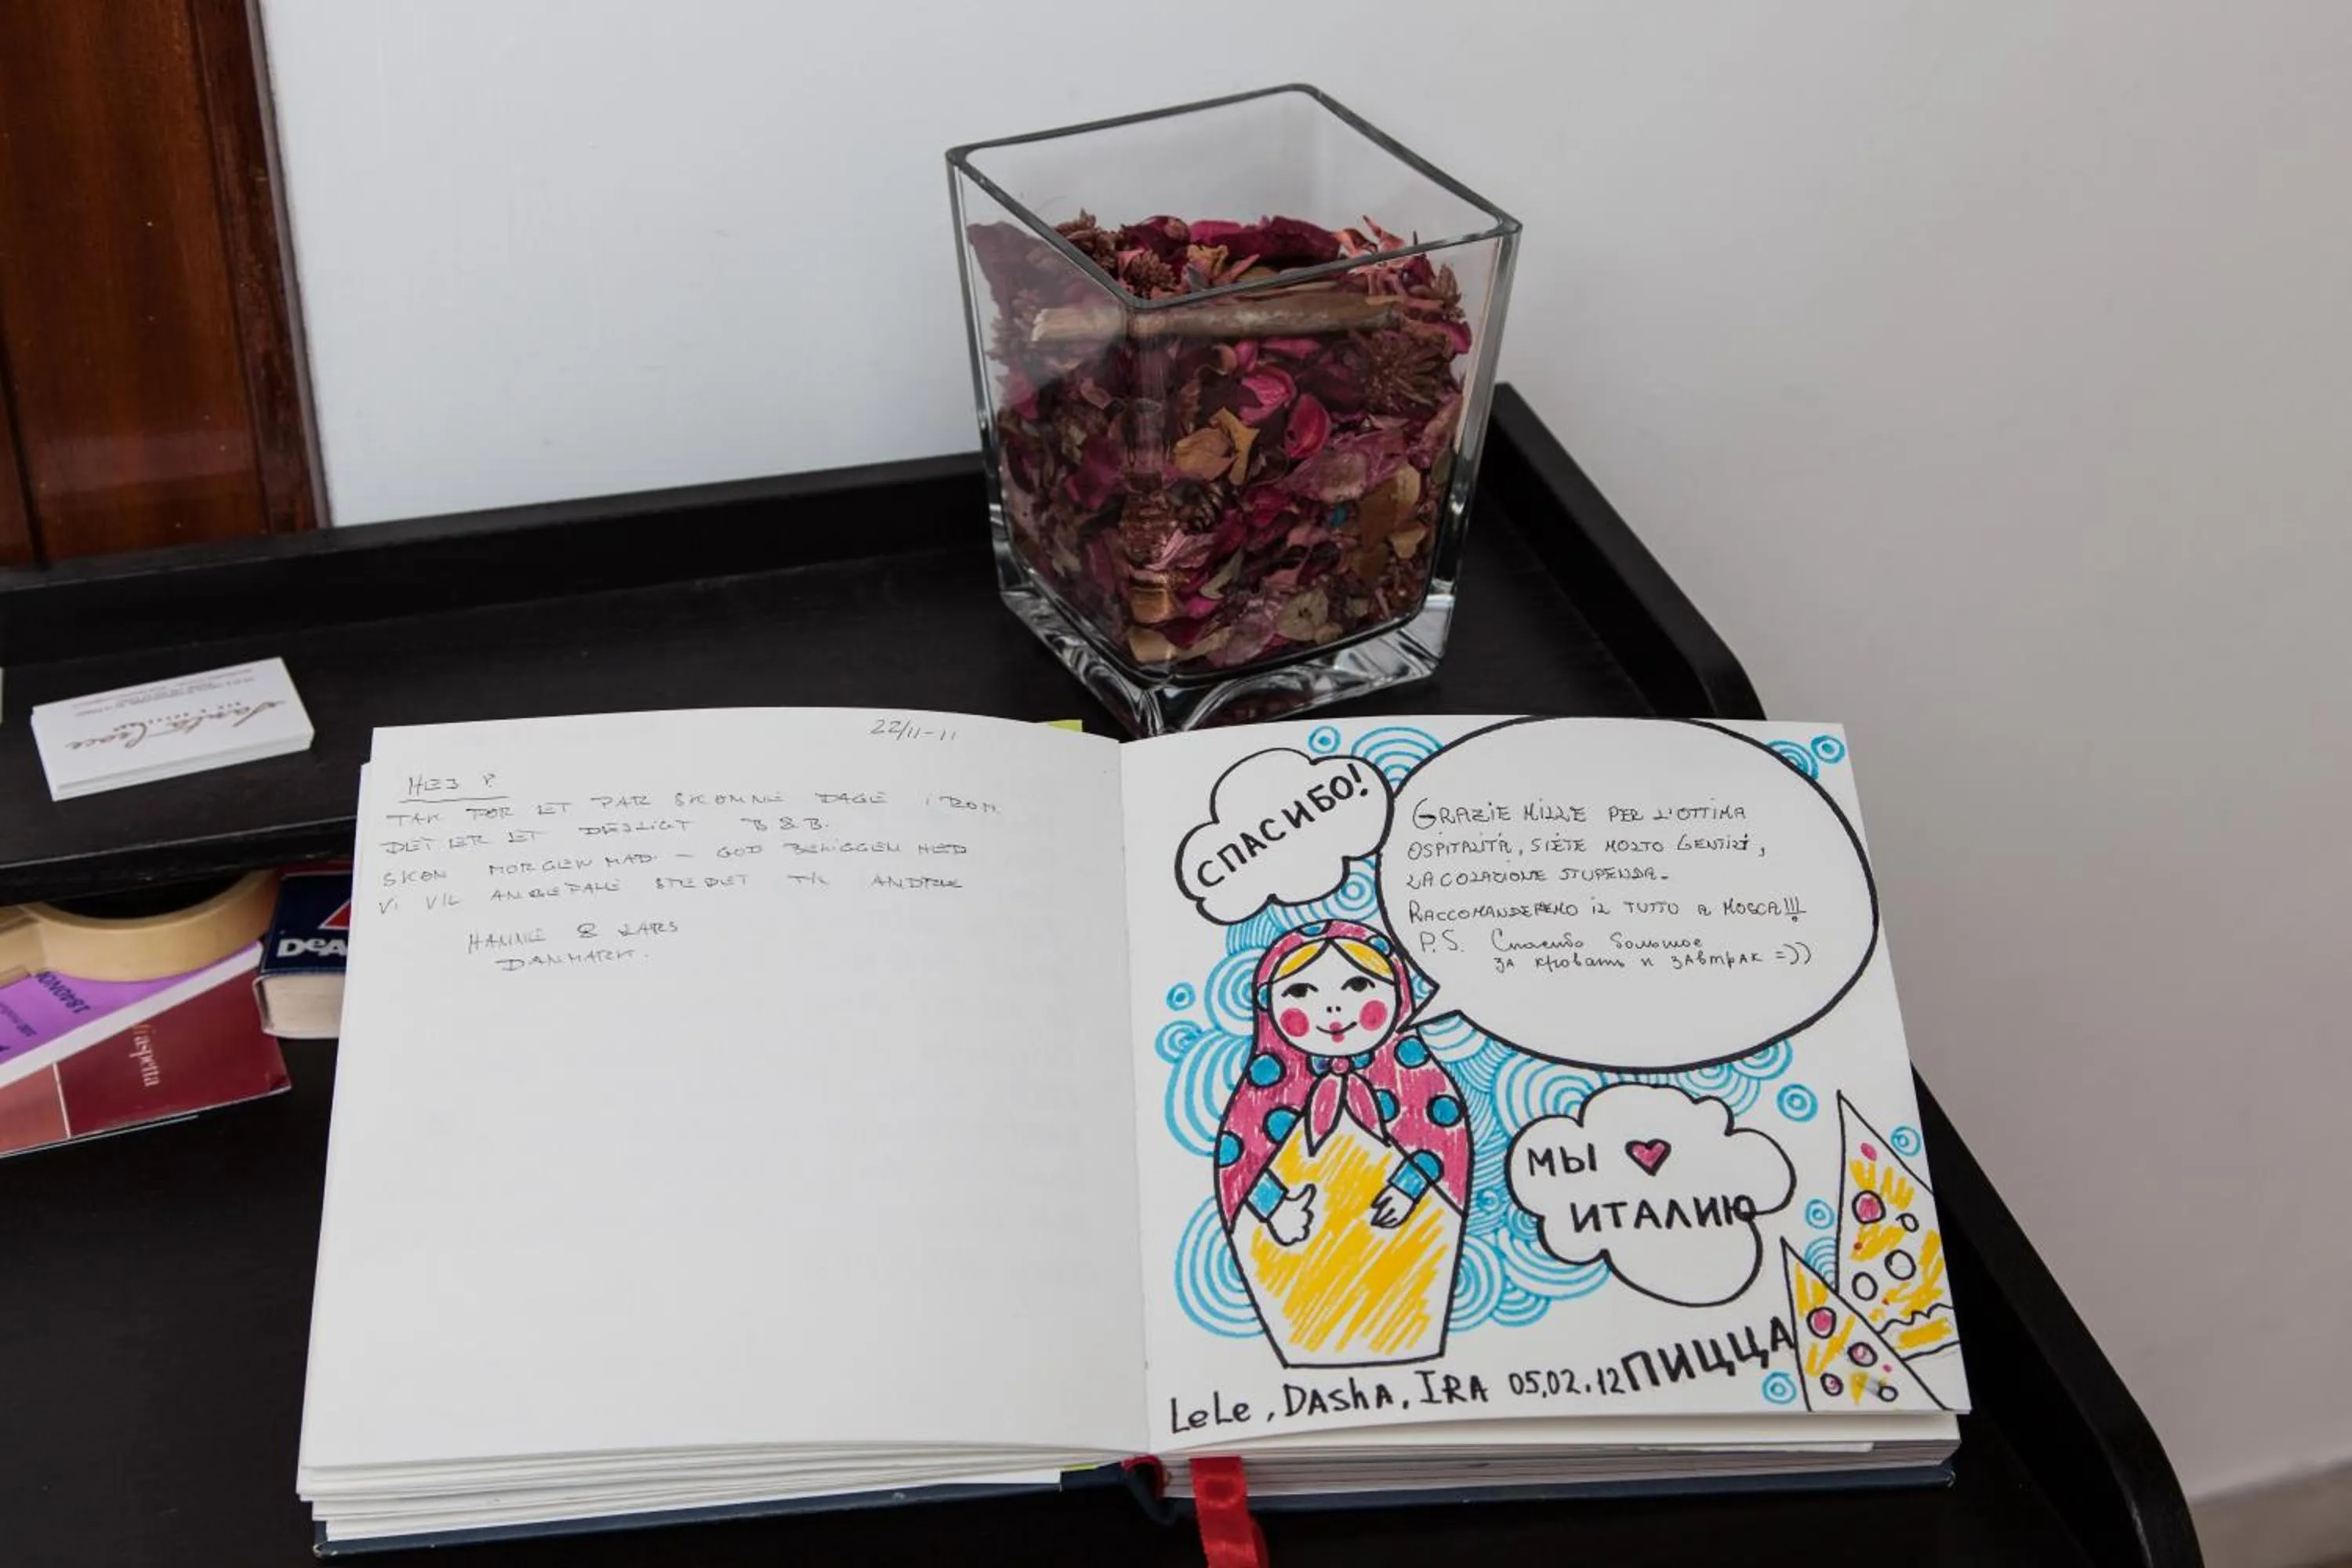 22/11-11
HEJ !
TAK FOR ET PAR SKØNNE DAGE I ROM.
DET ER ET DEJLIGT B & B.
SKØN MORGENMAD - GOD BELIGGENHED
VI VIL ANBEFALE STEDET TIL ANDRE
HANNE & LARS
DANMARK.
СПАСИБО!
GRAZIE MILLE PER L'OTTIMA
OSPITALITÀ, SIETE MOLTO GENTILI,
LA COLAZIONE STUPENDA.
RACCOMANDEREMO IL TUTTO A MOSCA!!!
P.S. Спасибо большое
за кровать и завтрак =))
МЫ ❤
ИТАЛИЮ
ПИЦЦА
LeLe, DASHA, IRA 05.02.12
Santa Croce
DeA
liaspetta